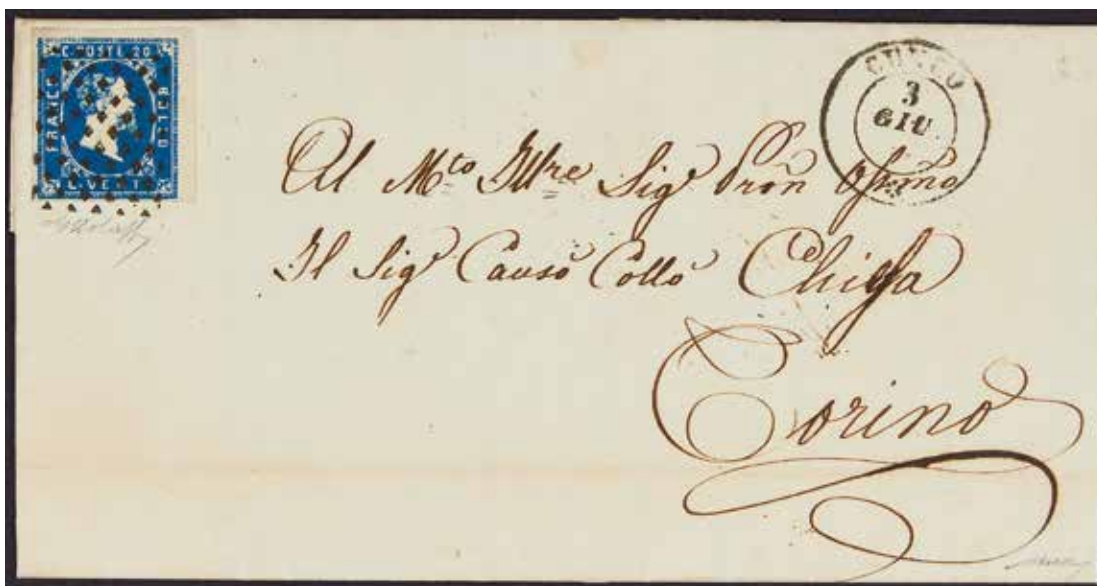 C. POSTE 20
FRANCO
BOLLO
C. VENTI
CUNEO
3
GIU
Al M.to Ill.re Sig.r Pron Osmo
Il Sig.r Caus.o Coll.o Chiesa
Torino